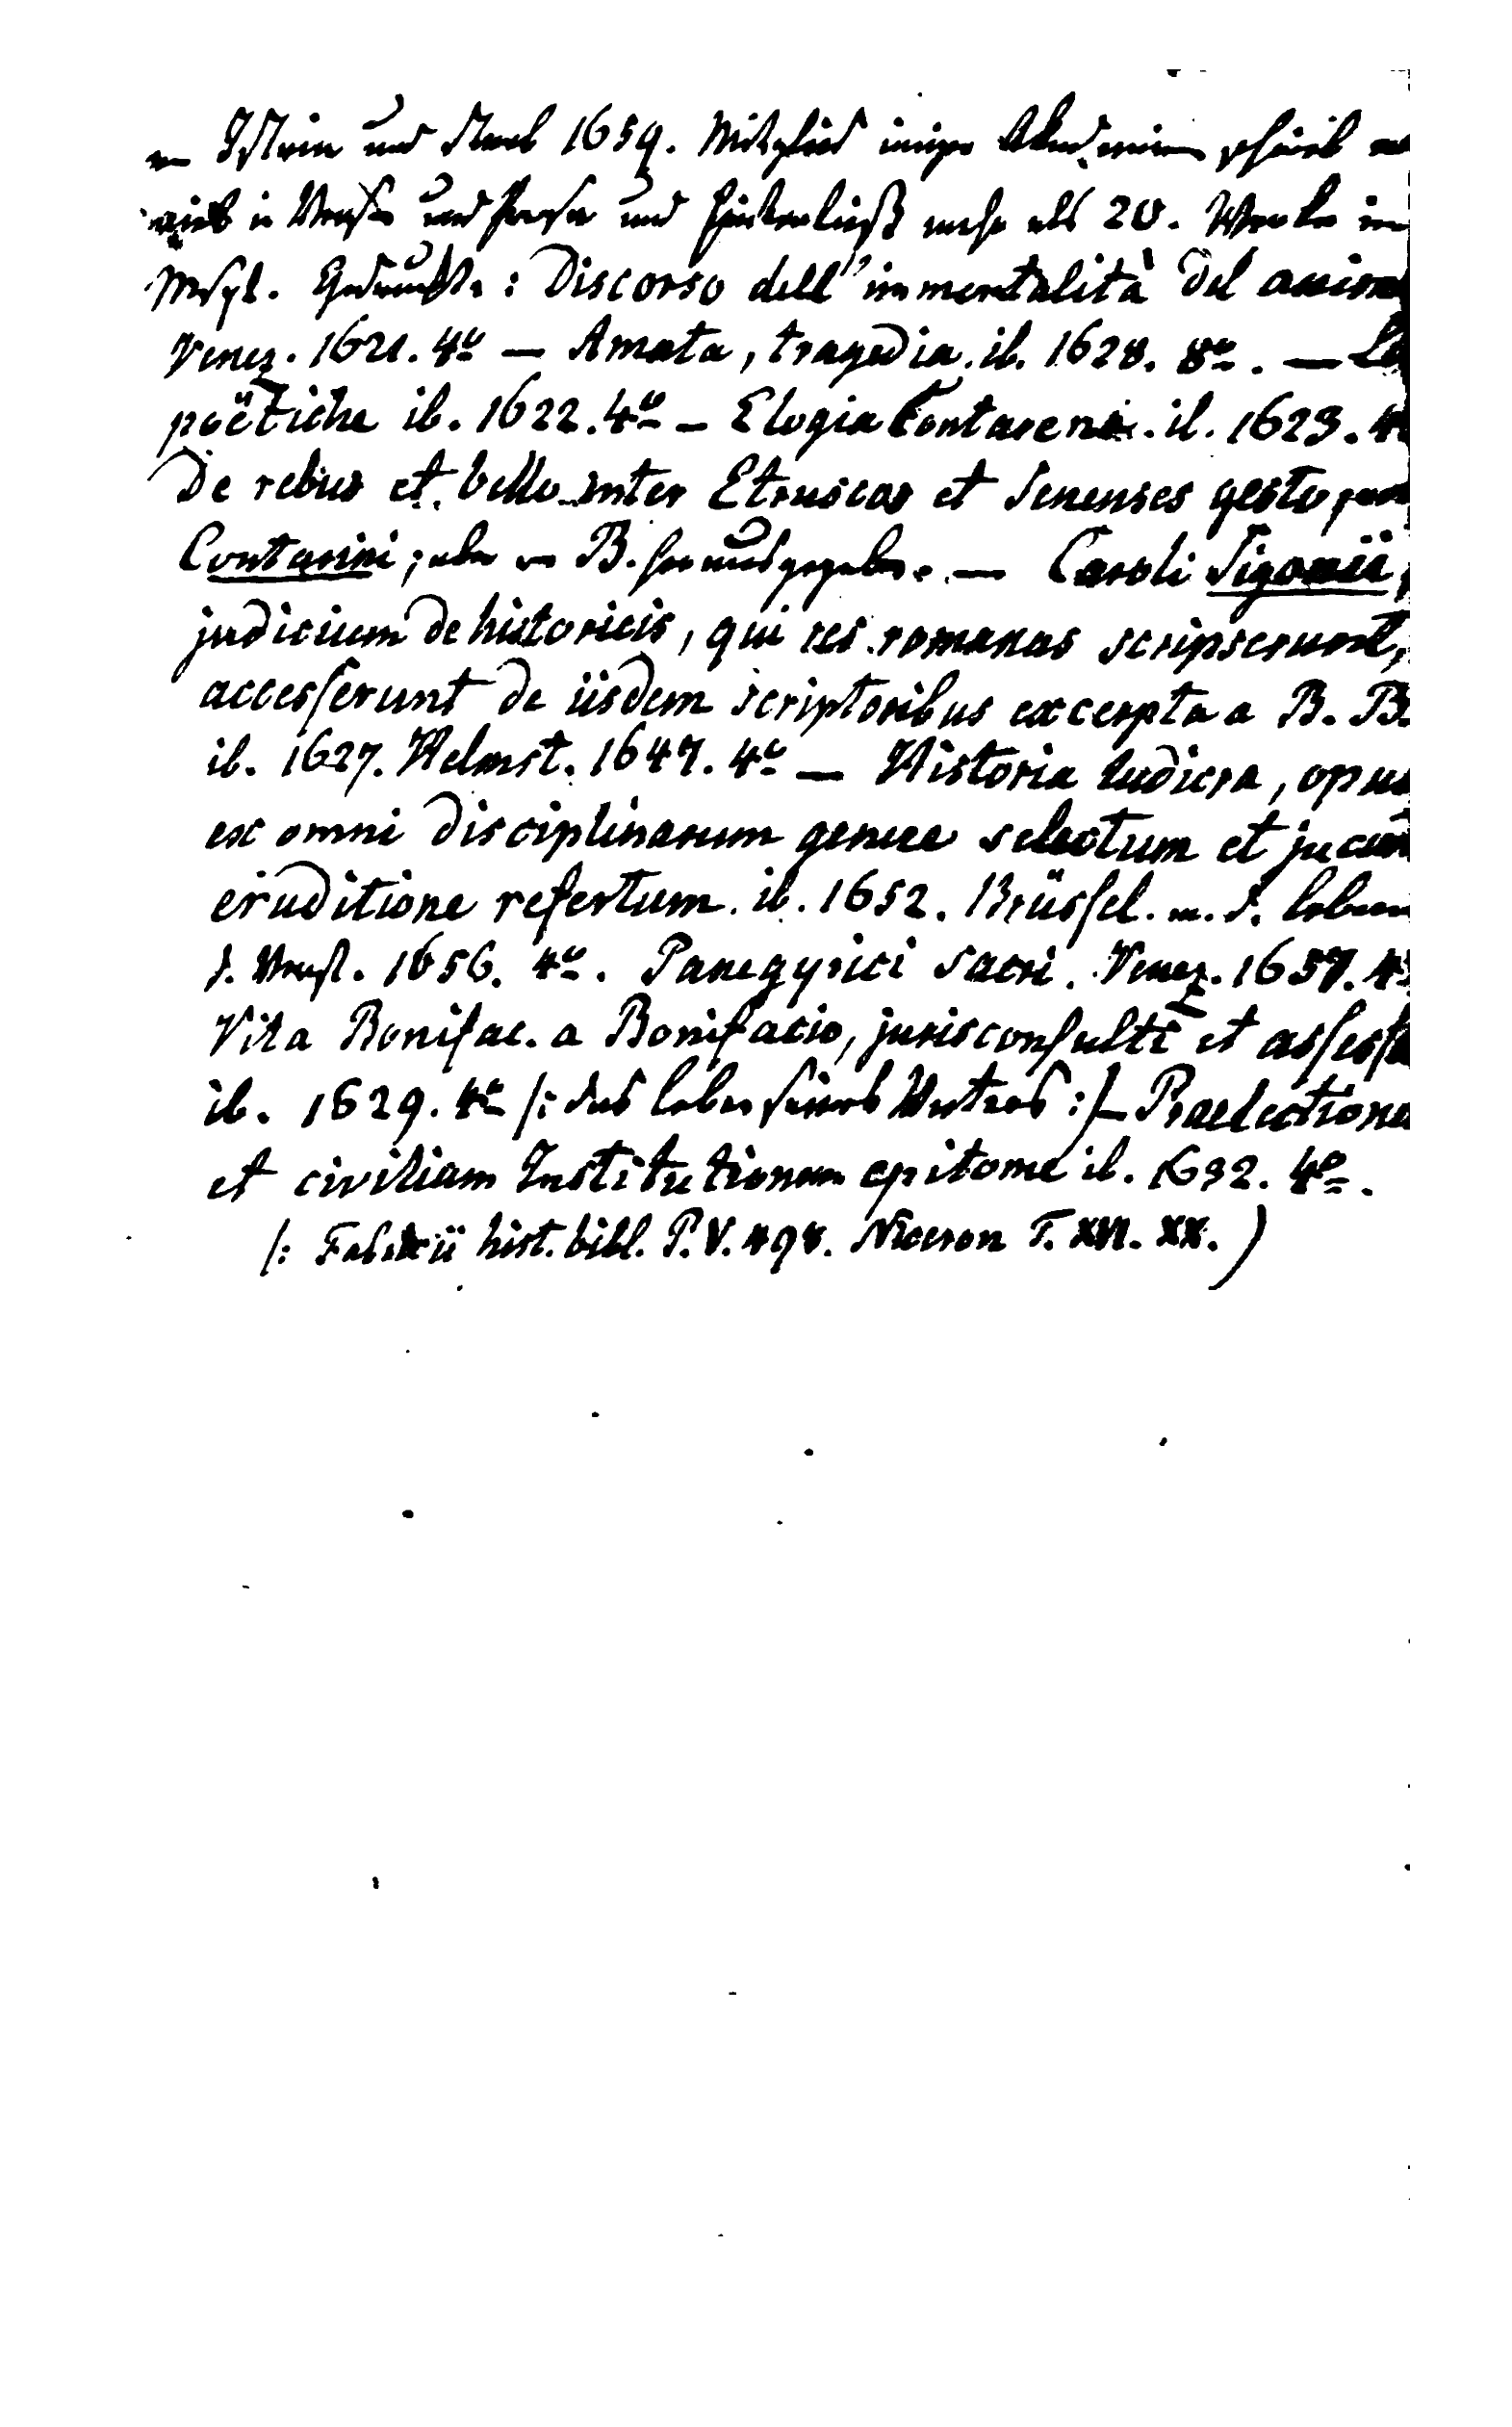 in Istrien und starb 1659. Mitglied einiger Akademien schrieb er
vieles in Versen und Prosa und hinterließ mehr als 20. Werke im
Mspt. Gedruckte: Discorso dell' immortalità del anima
Venez. 1621. 4º — Amata, tragedia. ib. 1628. 8º. —
poëtiche ib. 1622. 4º — Elogia Contarena. ib. 1623. 4º
De rebus et bello inter Etruscos et Senenses gesto
Contarini; aber von B. herausgegeben. — Caroli Sigonii,
judicium de historicis, qui res romanas scripserunt,
accesserunt de iisdem scriptoribus excerpta a B. B.
ib. 1627. Helmst. 1647. 4º — Historia ludicra, opus
ex omni disciplinarum genere selectum et jucun
eruditione refertum. ib. 1652. Brüssel. m. d. Leben
d. Verf. 1656. 4º. Panegyrici sacri. Venez. 1657. 4º
Vita Bonifac. a Bonifacio, jurisconsulti et assess
ib. 1629. 4º /: das Leben seines Vaters :/ — Praelectiones
et civilium Institutionum epitome ib. 1632. 4º.
/: Fabricii hist. bibl. P. V. 498. Niceron T. XVI. XX. )